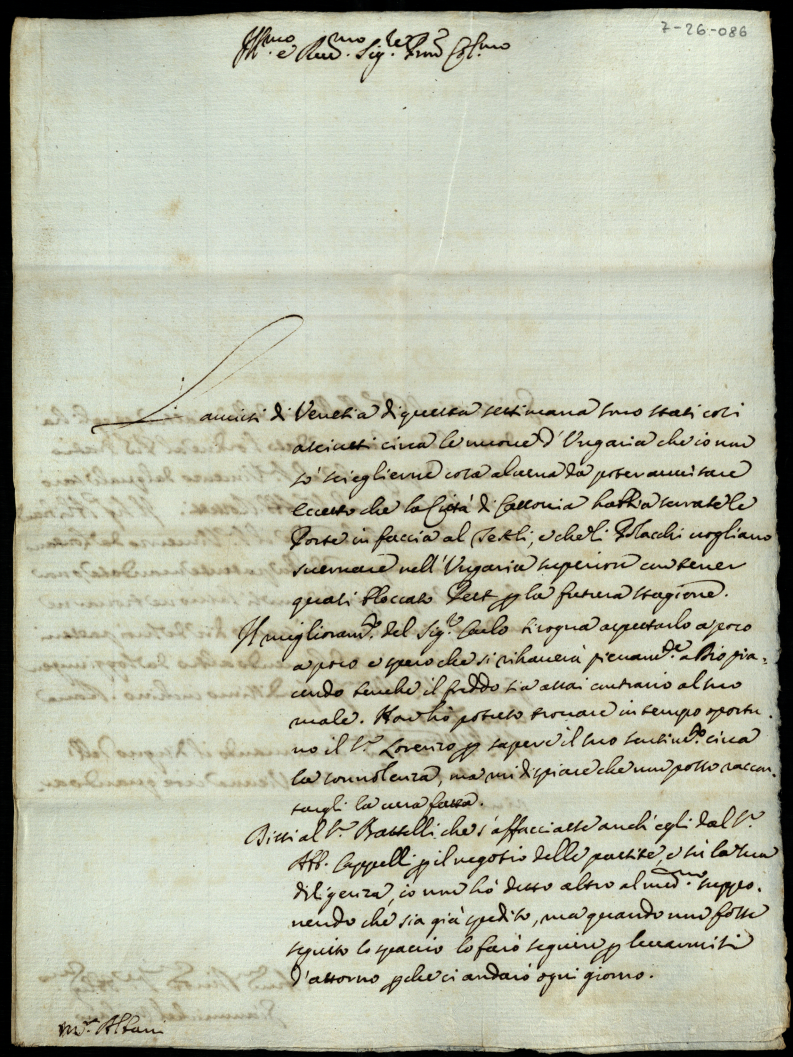 7-26-086
Ill.mo e Rev.mo Sig.re Pron Col.mo
L'avvisi di Venetia di questa settimana sono stati così
asciutti circa le nuove d'Ungaria che io non
sò scieglierne cosa alcuna da poter avvisare
eccetto che la Città di Cassonia habbia serrate le
Porte in faccia al Tekli, e che li Polacchi vogliano
svernare nell'Ungaria superiore con tener
quasi bloccato Pest p la futura stagione.
Il miglioram.to del Sig.r Carlo bisogna aspettarlo a poco
a poco e spero che si rihaverà pienam.te a Dio pia-
cendo benche il freddo sia assai contrario al suo
male. Non hò potuto trovare in tempo oportu-
no il S.r Lorenzo p sapere il suo sentim.to circa
la sonnolenza, ma mi dispiace che non posso raccon-
targli la cura fatta.
Dissi al S.r Battelli che s'affacciasse anch'egli dal S.r
Abb. Cappelli p il negotio delle partite, e fù la sua
diligenza, io non hò detto altro al med.mo suppo-
nendo che sia già spedito, ma quando non fosse
seguito lo spaccio lo farò seguire p levarmisi
d'attorno pche ci andarò ogni giorno.
m.r Albani